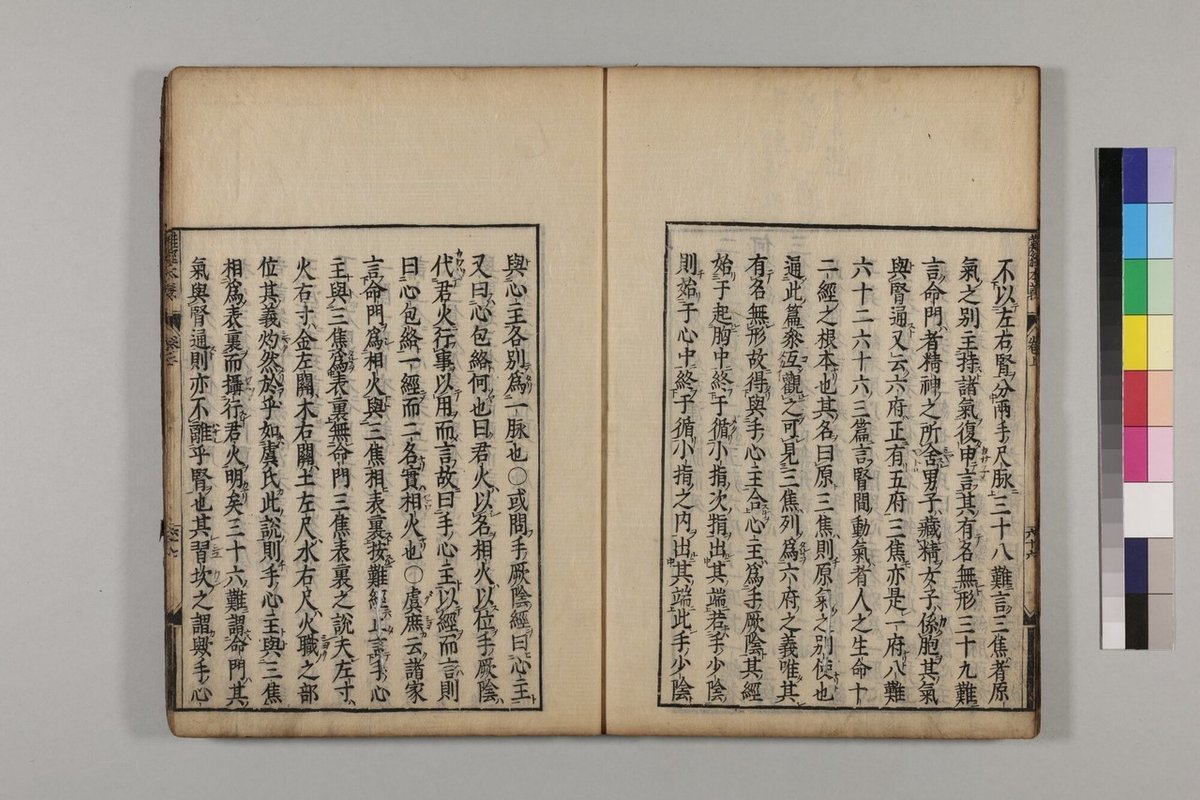 不以左右腎分兩手尺脉三十八難言三焦者原
氣之別主持諸氣復申言其有名無形三十九難
言命門者精神之所舍男子藏精女子係胞其氣
與腎通又云六府正有五府三焦亦是一府八難
六十二六十六三篇言腎間動氣者人之生命十
二經之根本也其名曰原三焦則原氣之別使也
通此篇參互觀之可見三焦列爲六府之義唯其
有名無形故得與手心主合心主爲手厥陰其經
始于起胸中終于循小指次指出其端若手少陰
則始于心中終于循小指之内出其端此手少陰
與心主各別爲一脉也○或問手厥陰經曰心主
又曰心包絡何也曰君火以名相火以位手厥陰
代君火行事以用而言故曰手心主以經而言則
曰心包絡一經而二名實相火也○虞庶云諸家
言命門爲相火與三焦相表裏按難經止言手心
主與三焦爲表裏無命門三焦表裏之說夫左寸
火右寸金左關木右關土左尺水右尺火職之部
位其義灼然於乎如虞氏此說則手心主與三焦
相爲表裏而攝行君火明矣三十六難謂命門其
氣與腎通則亦不離乎腎也其習坎之謂歟手心